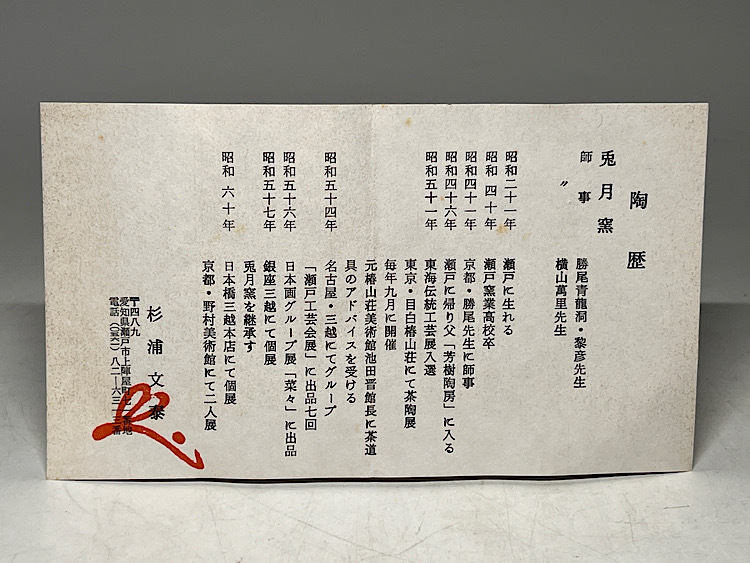 陶歴
兎月窯
師事 勝尾青龍洞・黎彦先生
〃 横山萬里先生
昭和二十一年 瀬戸に生れる
昭和四十年 瀬戸窯業高校卒
昭和四十一年 京都・勝尾先生に師事
昭和四十六年 瀬戸に帰り父「芳樹陶房」に入る
昭和五十一年 東海伝統工芸展入選
東京・目白椿山荘にて茶陶展
毎年九月に開催
元椿山荘美術館池田晋館長に茶道
具のアドバイスを受ける
昭和五十四年 名古屋・三越にてグループ
「瀬戸工芸会展」に出品七回
昭和五十六年 日本画グループ展「菜々」に出品
昭和五十七年 銀座三越にて個展
兎月窯を継承す
昭和六十年 日本橋三越本店にて個展
京都・野村美術館にて二人展
杉浦文泰
〒四八九
愛知県瀬戸市上陣屋町 番地
電話(〇五六一)八二―六三 番